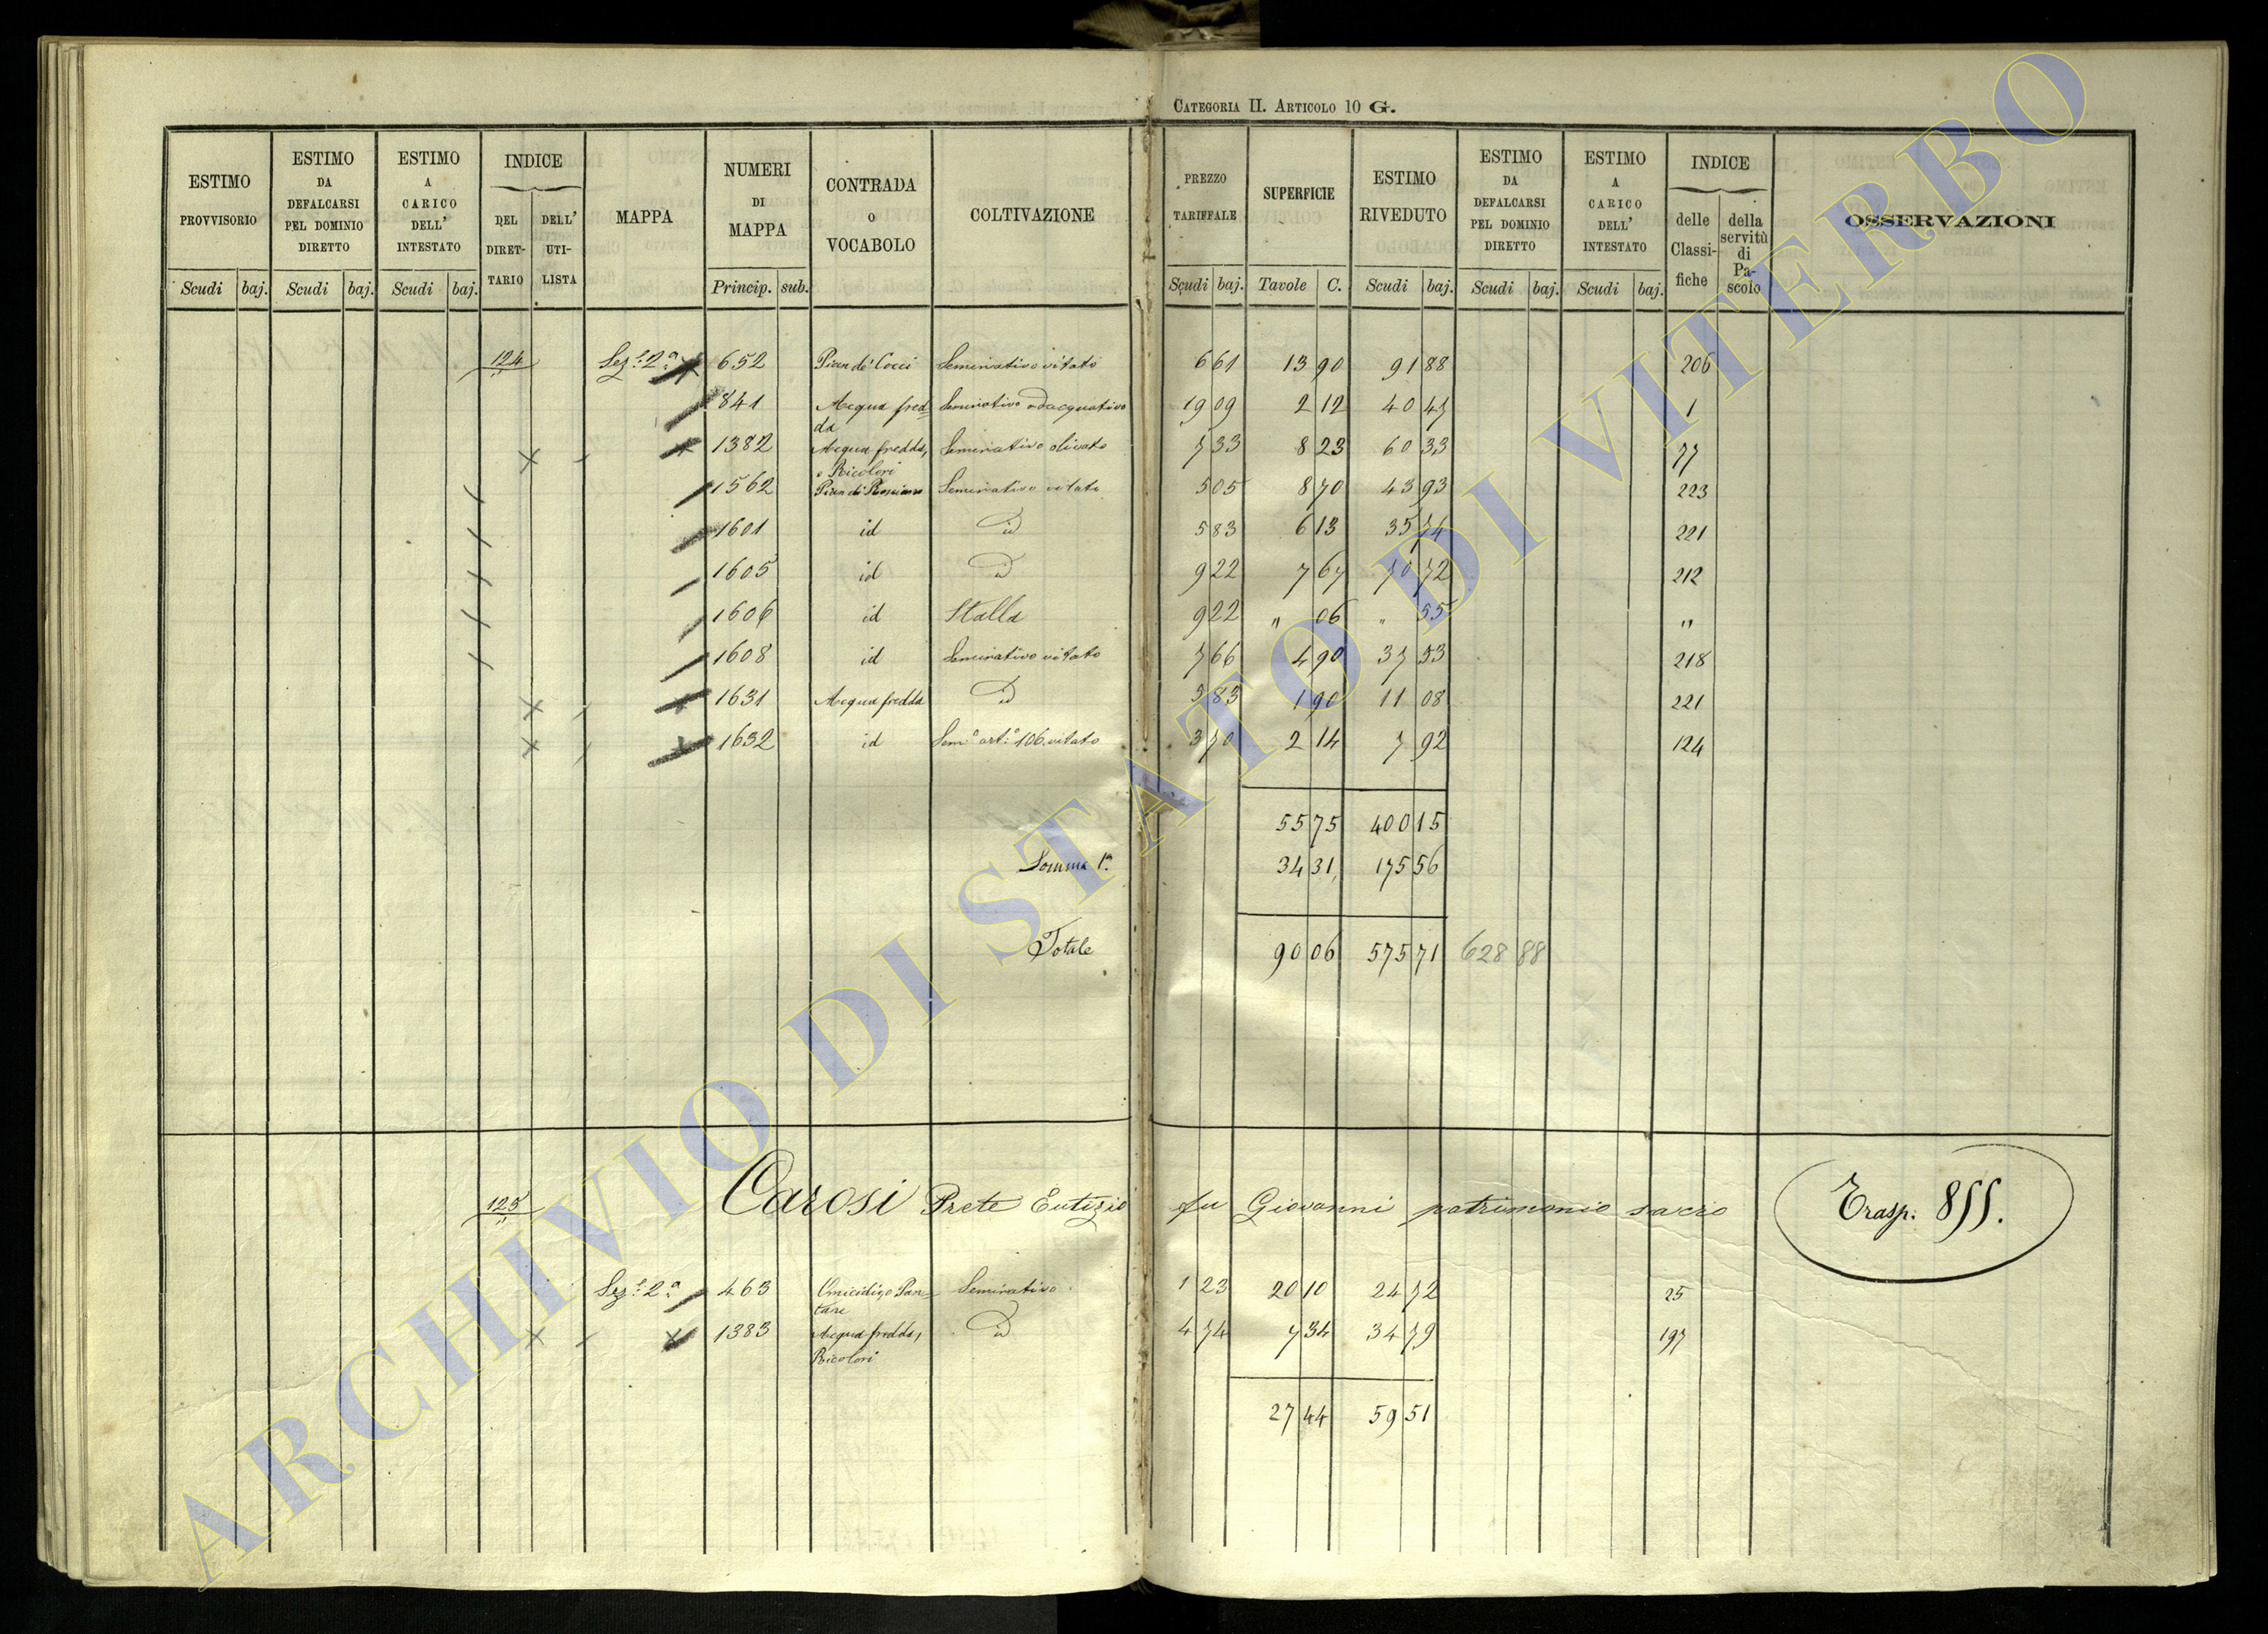 CATEGORIA II. ARTICOLO 10 G.
ESTIMO PROVVISORIO | ESTIMO DA DEFALCARSI PEL DOMINIO DIRETTO | ESTIMO A CARICO DELL' INTESTATO | INDICE DEL DIRET-TARIO | DELL' UTI-LISTA | MAPPA | NUMERI DI MAPPA | CONTRADA O VOCABOLO | COLTIVAZIONE | PREZZO TARIFFALE | SUPERFICIE | ESTIMO RIVEDUTO | ESTIMO DA DEFALCARSI PEL DOMINIO DIRETTO | ESTIMO A CARICO DELL' INTESTATO | INDICE delle Classi-fiche | della servitù di Pa-scolo | OSSERVAZIONI
Scudi | baj. | Scudi | baj. | Scudi | baj. | Princip. | sub. | Scudi | baj. | Tavole | C. | Scudi | baj. | Scudi | baj. | Scudi | baj.
124 | Sez.e 2a | 652 | Pian de' Cocci | Seminativo vitato | 6 61 | 13 90 | 91 88 | 206
841 | Acqua fred-da | Seminativo adacquativo | 19 09 | 2 12 | 40 47 | 1
1382 | Acqua fredda, o Ricolori | Seminativo olivato | 7 33 | 8 23 | 60 33 | 77
1562 | Seminativo vitato | 5 05 | 8 70 | 43 93 | 223
1601 | id | id | 5 83 | 6 13 | 35 74 | 221
1605 | id | id | 9 22 | 7 67 | 70 72 | 212
1606 | id | Stalla | 9 22 | " 06 | " 55 | "
1608 | id | Seminativo vitato | 7 66 | 4 90 | 37 53 | 218
1631 | Acqua fredda | id | 5 83 | 1 90 | 11 08 | 221
1632 | id | Sem.o art.o 106 vitato | 3 70 | 2 14 | 7 92 | 124
55 75 | 400 15
Somma 1a | 34 31 | 175 56
Totale | 90 06 | 575 71 | 628 88
125 | Carosi Prete Eutizio fu Giovanni patrimonio sacro | Trasp: 855.
Sez.e 2a | 463 | Seminativo | 1 23 | 20 10 | 24 72 | 25
1383 | Acqua fredda, Ricolori | id | 4 74 | 7 34 | 34 79 | 197
27 44 | 59 51
ARCHIVIO DI STATO DI VITERBO